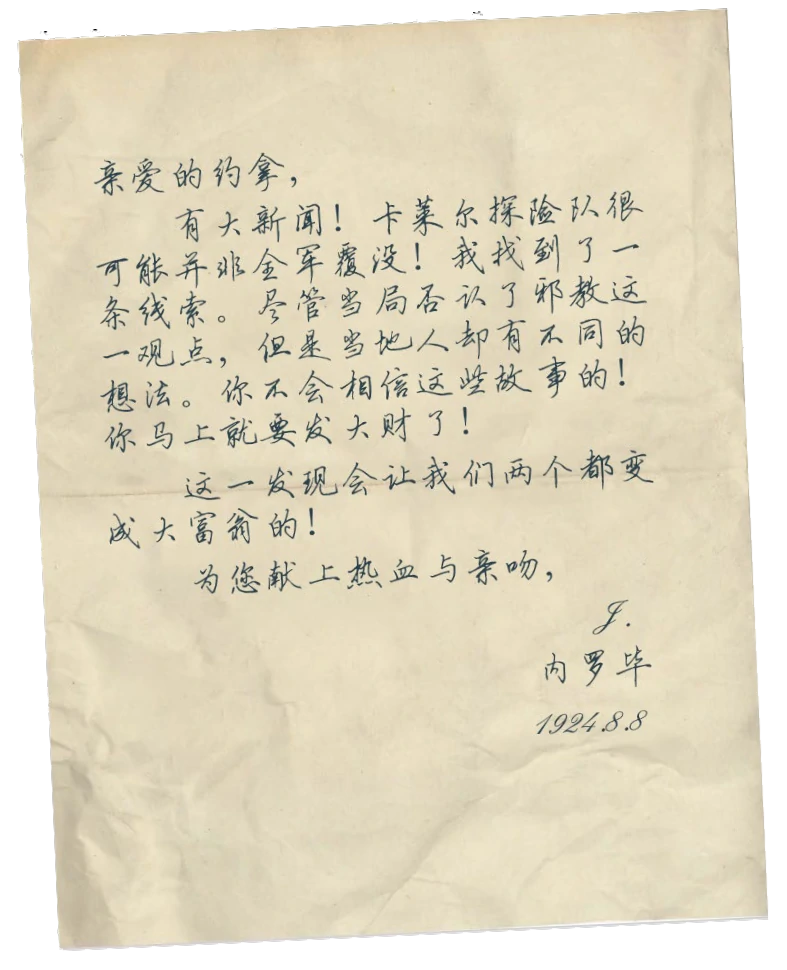 亲爱的约拿，
有大新闻！卡莱尔探险队很
可能并非全军覆没！我找到了一
条线索。尽管当局否认了邪教这
一观点，但是当地人却有不同的
想法。你不会相信这些故事的！
你马上就要发大财了！
这一发现会让我们两个都变
成大富翁的！
为您献上热血与亲吻，
J.
内罗毕
1924.8.8